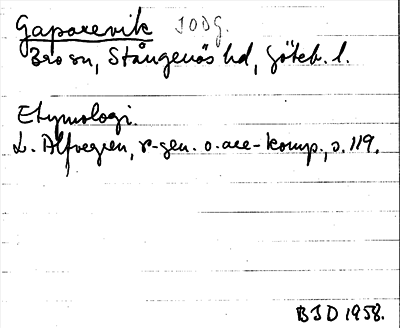 Gaparevik IODG.
Bro sn, Stångenäs hd, Göteb. l.
Etymologi.
L. Alfvegren, r-gen. o. ack-komp., s. 119.
BID 1958.